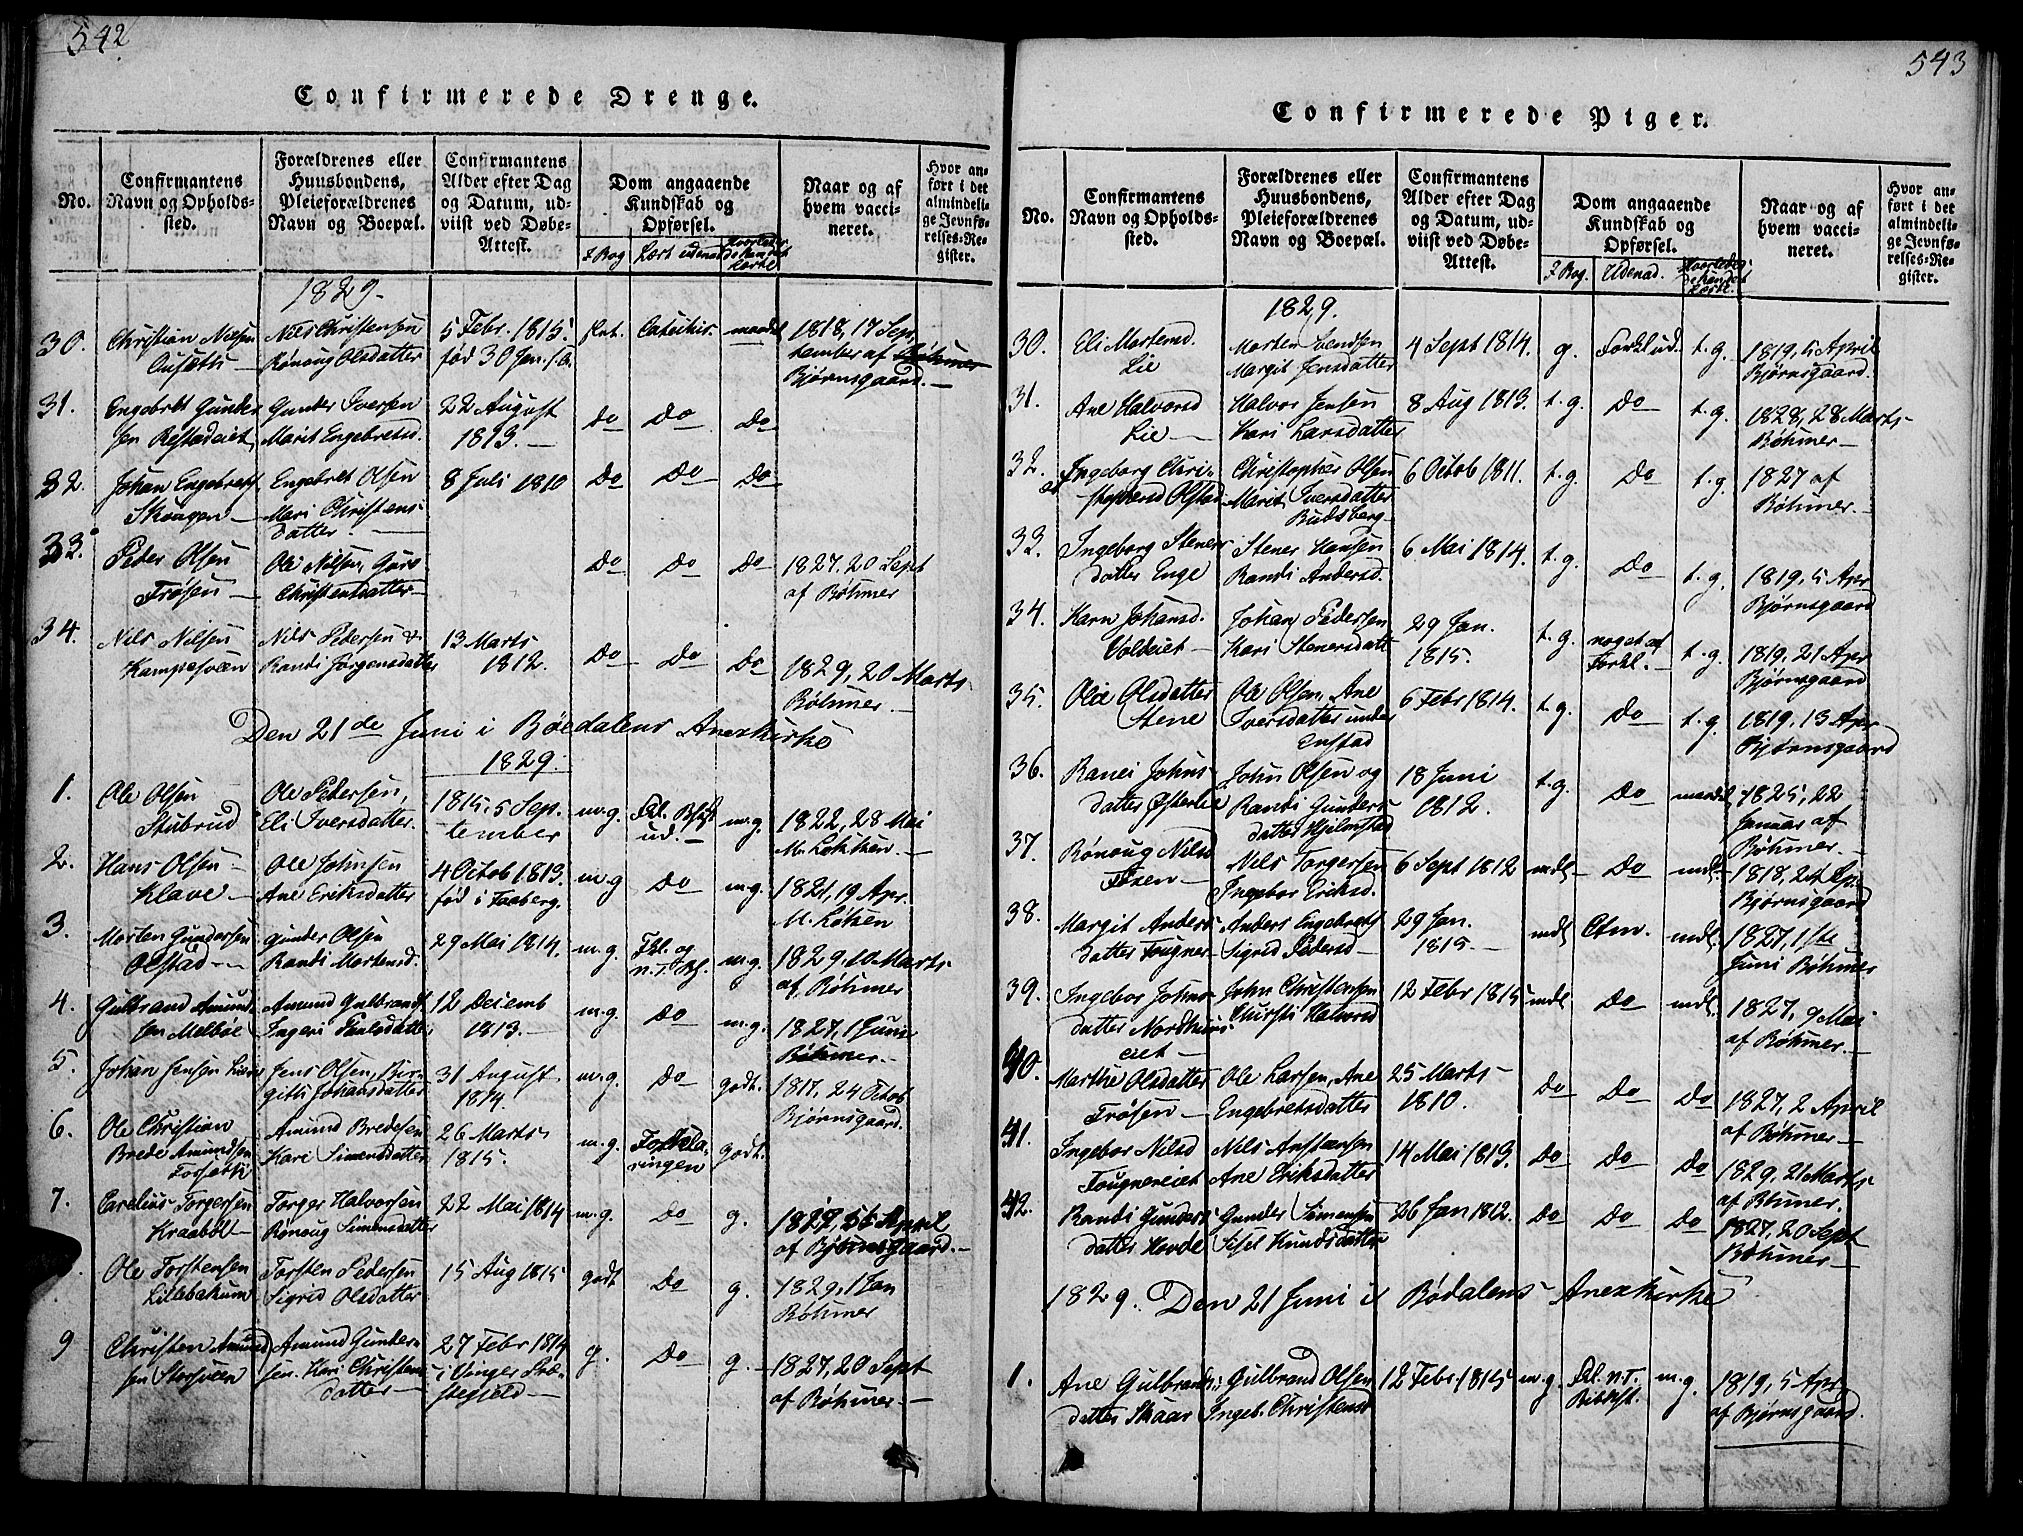 542
Confirmerede Drenge.
No.
Confirmantens
Navn og Opholds-
sted.
Forældrenes eller
Huusbondens,
Pleieforældrenes
Navn og Boepæl.
Confirmantens
Alder efter Dag
og Datum, ud-
viist ved Døbe-
Attest.
Dom angaaende
Kundskab og
Opførsel.
I Bog
Lært udenad
Naar og af
hvem vacci-
neret.
Hvor an-
ført i det
almindeli-
ge Jevnfø-
relses-Re-
gister.
1829.
30. Christian Nilsen
Nils Christensen
Rønoug Olsdatter
5 Febr. 1815.
født 30 Jan. s.A.
maadel
1818, 17 Sep-
tember af Bøhmer
Bjørnsgaard.
31. Engebret Gunder-
sen
Gunder Iversen
Marit Engebretsd.
22 August
1813.
Do Do Do
32. Johan Engebrets.
Skougen
Engebret Olsen
Mari Christens-
datter.
8 Juli 1810
Do Do Do
33. Peder Olsen
Frøsen
Ole Nilsen, Guro
Christensdatter
Do Do Do
1827. 20 Sept
af Bøhmer
34. Nils Nilsen
Kampesveen
Nils Pedersen &
Randi Jørgensdatter
13 Marts
1812.
Do Do Do
1829, 20 Marts
Bøhmer.
Den 21de Juni i Bøedalens Anexkirke
1829.
1. Ole Olsen
Stubrud
Ole Pedersen,
Eli Iversdatter.
1815, 5 Sep-
tember
m.g.
ud.
m.g.
1822, 28 Mai
M. Løkken.
2. Hans Olsen
Klave
Ole Johnsen
Ane Eriksdatter
4 Octob 1813.
fød i Faaberg.
m.g Do m.g.
1821, 19 Apr.
M. Løken
3. Morten Gundersen
Olstad
Gunder Olsen
Randi Mortensd.
29 Mai 1814.
m.g.
Fkl. og
m.g.
1829, 10 Marts
af Bøhmer
4. Gulbrand Amund-
sen Melbøe
Amund Gulbrands.
Ingeri Poulsdatter
12 Decemb
1813.
m.g. Do m.g.
1827, 1 Juni
Bøhmer.
5. Johan Jensen
Jens Olsen, Bir-
gith Johansdatter
31 August
1814.
m.g. Do godt.
1817, 24 Octob
Bjørnsgaard.
6. Ole Christian
Brede Amundsen
Forsætte
Amund Bredesen
Kari Simensdatter
26 Marts
1815.
m.g.
Forkla-
ringen
godt.
7. Carelius Torgersen
Kraabøl
Torger Halvorsen
Rønoug Simensdatter
22 Mai 1814
m.g. Do g.
af Bjørnsgaard.
Ole Torstensen
Lillebakum
Torsten Pedersen
Sigrid Olsdatter
15 Aug 1815
godt Do g.
1829, 1 Jan
Bøhmer
9 Christen Amund-
sen Storsveen
Amund Gunder-
sen. Kari Christens
datter
27 Febr 1814
i Vinger Præ-
stegjeld
g. Do g.
1827, 20 Sept
af Bøhmer.
543
Confirmerede Piger.
No.
Confirmantens
Navn og Opholds-
sted.
Forældrenes eller
Huusbondens,
Pleieforældrenes
Navn og Boepæl.
Confirmantens
Alder efter Dag
og Datum, ud-
viist ved Døbe-
Attest.
Dom angaaende
Kundskab og
Opførsel.
I Bog.
Udenad.
Naar og af
hvem vacci-
neret.
Hvor an-
ført i det
almindeli-
ge Jevnfø-
relses-Re-
gister.
1829.
30. Eli Mortensd.
Lie
Morten
Margit Jensdatter
4 Sept 1814.
g. Forkl ud. t.g.
1819, 5 April
Bjørnsgaard.
31. Ane Halvorsd
Lie
Halvor Jensen
Kari Larsdatter
8 Aug 1813.
t.g. Do t.g.
1828, 28 Marts
Bøhmer
32. Ingeborg Chri-
stophersd Olstad
Christopher Olsen
Marit Iversdatter
Budsberg
6 Octob 1811.
t.g. Do t.g.
1827 af
Bøhmer.
33. Ingeborg Steners
datter Enge
Stener Hansen
Randi Andersd.
6 Mai 1814.
t.g. Do t.g.
1819, 5 Apr
Bjørnsgaard
34. Karn Johansd.
Voldeiet
Johan Pedersen
Kari Stenersdatt
29 Jan.
1815.
t.g.
noget af
Forkl.
t.g.
1819, 21 Apr
Bjørnsgaard
35. Olea Olsdatter
Stene
Ole Olsen, Ane
Iversdatter under
Enstad
6 Febr 1814.
t.g. Do t.g.
1819, 13 Apr
Bjørnsgaard
36. Ranei Johns-
datter Østerlie
John Olsen og
Randi Gunders-
datter Hjelmstad
18 Juni
1812.
t.g. Do maadel
1825, 22
Januar af
Bøhmer.
37. Rønoug Nilsd
Nils Torgersen
Ingebor Eriksd.
6 Sept 1812
mdl Do mdl
1818, 24 Sep.
Bjørnsgaard
38. Margit Anders
datter Fougner
Anders Engebrets
Sigrid Pedersd
29 Jan.
1815.
mdl Ctm. mdl.
1827, 1ste
Juni Bøhmer
39. Ingebor Johns-
datter Nordhuus
eiet
John Christensen
Christi Halvorsd
12 Febr 1815
mdl Do mdl.
1827, 9 Mai
af Bøhmer.
40. Marthe Olsdatter
Frøsen
Ole Larsen, Ane
Engebretsdatter
25 Marts
1810.
Do Do Do
1827, 2 April
af Bøhmer
41. Ingebor Nilsd
Fougnereiet
Nils Anstensen
Ane Eriksdatter
14 Mai 1813.
Do Do Do
1829, 21 Marts
af Bhmer.
42. Randi Gunders
datter Hovde
Gunder Simensen
Sisel Knudsdatter
26 Jan 1812.
Do Do Do
1827, 20 Sept
Bøhmer
1829. Den 21 Juni i Bødalens Anexkirke
1. Ane Gulbrands
datter Skaar
Gulbrand Olsen
Ingeb. Christensd
12 Febr 1815
m.g.
Fkl. n.T.
Bibelhst.
m.g.
1819, 5 Apr.
af Bjørnsgaard.